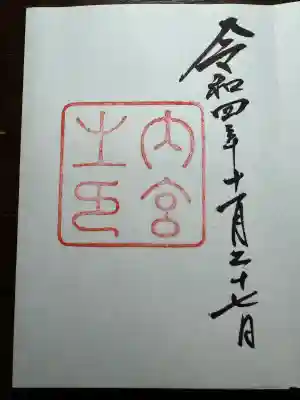 令和四年十一月二十七日
内宮之印